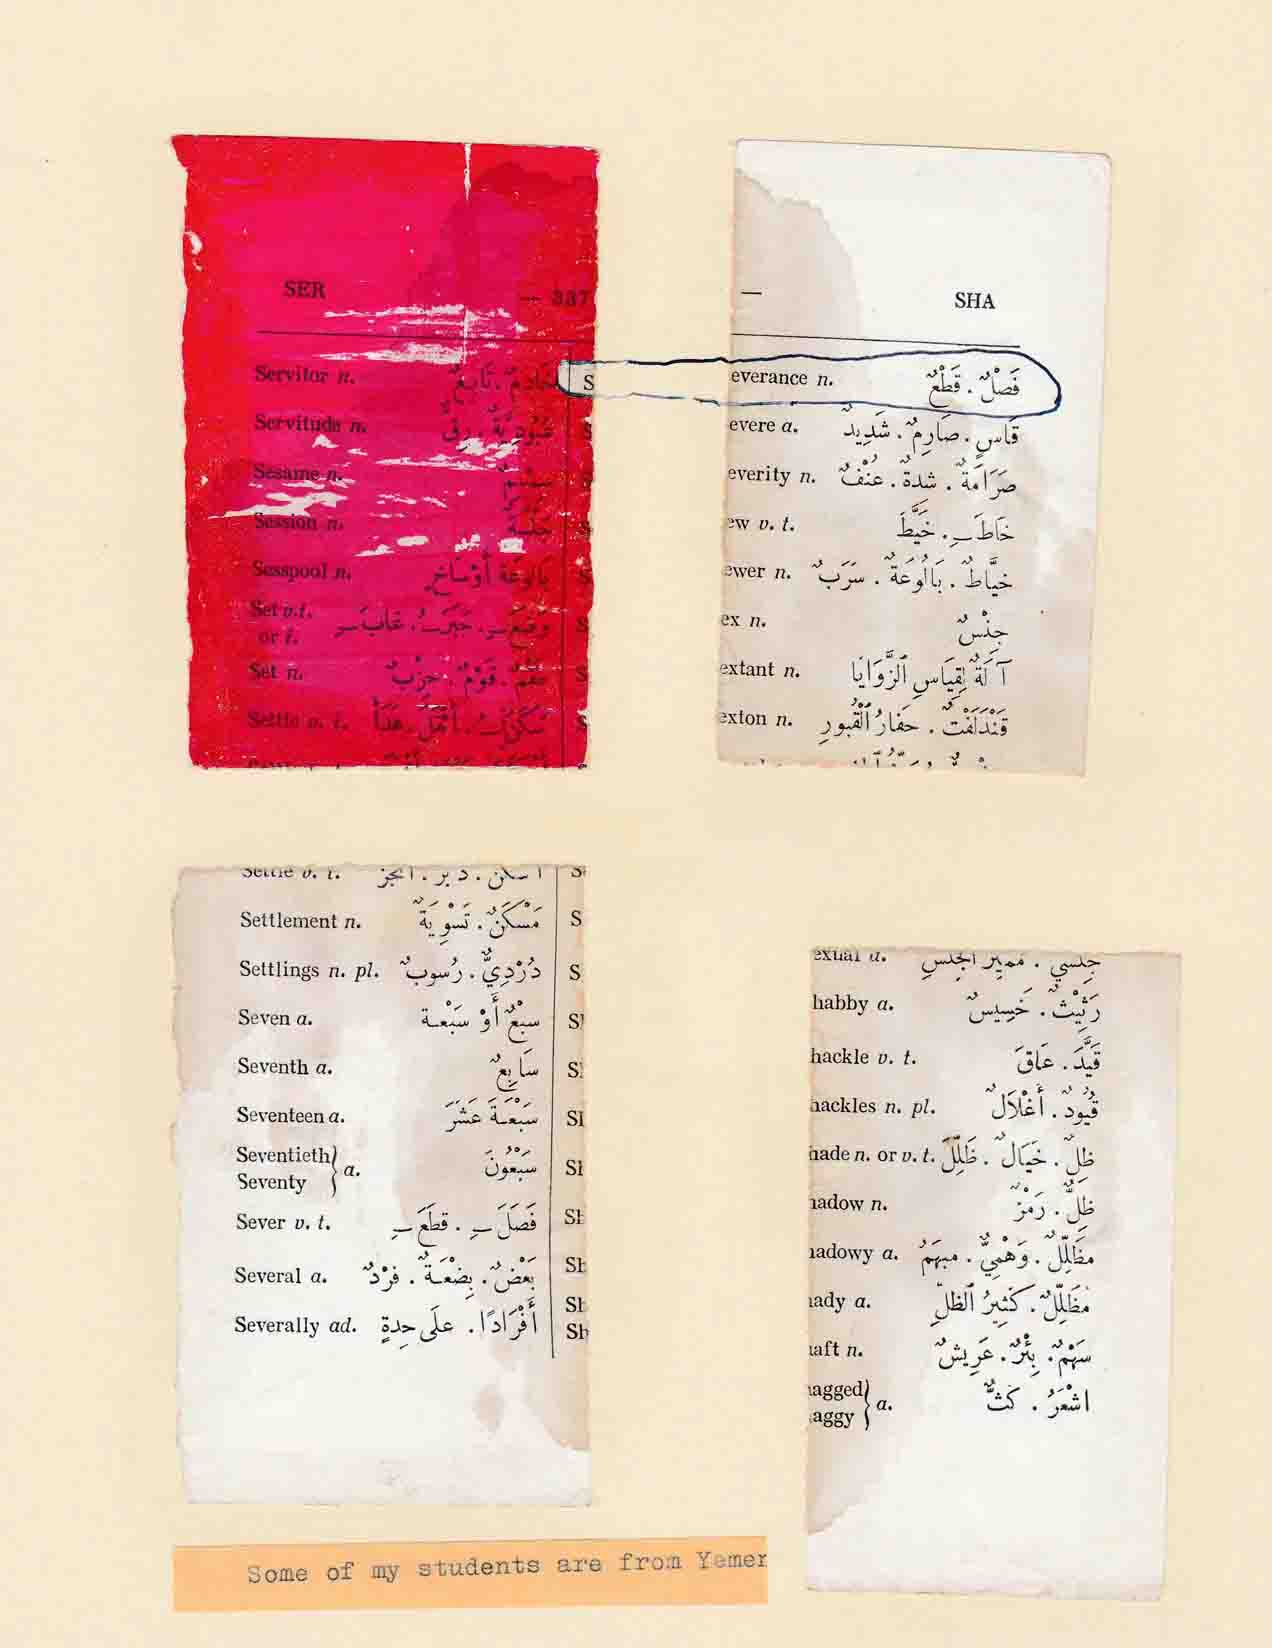 SER
— 337
Servitor n. خَادِمٌ. تَابِعٌ
S
Servitude n. عُبُودِيَّةٌ. رِقٌّ
Sesame n. سِمْسِمٌ
Session n. جَلْسَةٌ
Sesspool n. بَالُوعَةُ أَوْسَاخٍ
Set v.t.
or i.
Set n. قَوْمٌ. حِزْبٌ
Settle v. t.
—
SHA
everance n. فَصْلٌ. قَطْعٌ
evere a. قَاسٍ. صَارِمٌ. شَدِيدٌ
everity n. صَرَامَةٌ. شدةٌ. عُنْفٌ
ew v. t. خَاطَـِ. خَيَّطَ
ewer n. خيَّاطٌ. بَالُوعَةٌ. سَرَبٌ
ex n. جِنْسٌ
extant n. آلَةٌ لِقِيَاسِ ٱلزَّوَايَا
exton n. قَنْدَلَفْتٌ. حَفارُ ٱلْقُبورِ
Settle v. t. اسكن. دبر. أنجز
S
Settlement n. مَسْكَنٌ. تَسْوِيَةٌ
S
Settlings n. pl. دُرْدِيٌّ. رُسوبٌ
S
Seven a. سبْعٌ أَوْ سَبْعـة
Sh
Seventh a. سَابِعٌ
Sh
Seventeen a. سَبْعَـةَ عَشَرَ
Sh
Seventieth
Seventy } a. سَبْعُونَ
Sh
Sever v. t. فَصَلَـِ. قطَعَـِ
Sh
Several a. بَعْضٌ. بِضْعَـةٌ. فرْدٌ
Sh
Severally ad. أَفْرَادًا. علَى حِدِةٍ
Sh
Sh
exual a. جِنسي. مميز الجنس
habby a. رَثِيْثٌ. خَسِيسٌ
hackle v. t. قَيَّدَ. عَاقَ
hackles n. pl. قُيُودٌ. أَغْلَالٌ
hade n. or v. t. ظلٌ. خَيَالٌ. ظَلِّلَ
hadow n. ظِلٌّ. رَمْزٌ
hadowy a. مظَلِّلٌ. وَهْمِيٌّ. مبهَمٌ
hady a. مُظَلِّلٌ. كثِيرُ ٱلظلِّ
haft n. سَهْمٌ. بِئْرٌ. عَرِيشٌ
hagged
haggy } a. اشْعَرُ. كَثٌّ
Some of my students are from Yemen